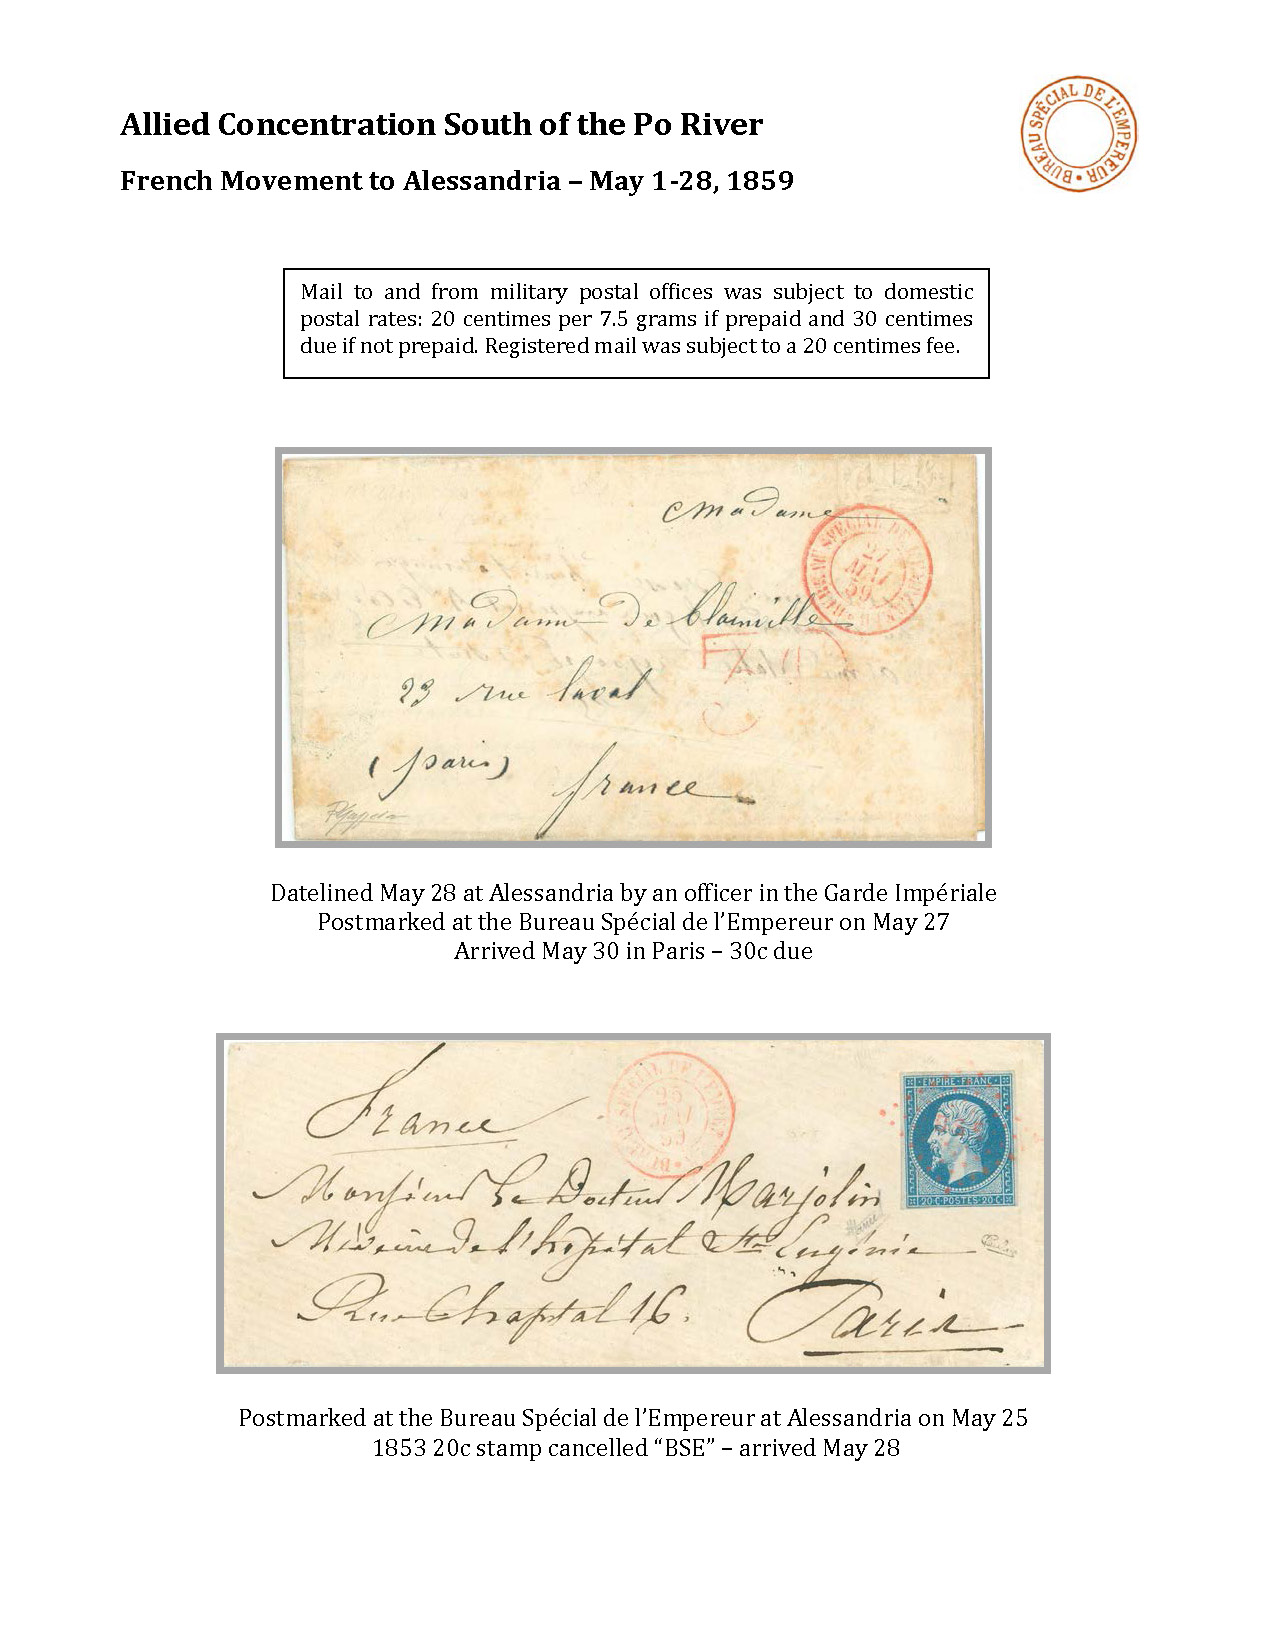 Allied Concentration South of the Po River
BUREAU SPÉCIAL DE L'EMPEREUR
French Movement to Alessandria – May 1-28, 1859
Mail to and from military postal offices was subject to domestic
postal rates: 20 centimes per 7.5 grams if prepaid and 30 centimes
due if not prepaid. Registered mail was subject to a 20 centimes fee.
Madame
27
MAI
59
Madame De Blainville
23 rue laval
(paris)
france
Datelined May 28 at Alessandria by an officer in the Garde Impériale
Postmarked at the Bureau Spécial de l’Empereur on May 27
Arrived May 30 in Paris – 30c due
France
25
MAI
59
EMPIRE FRANC
Monsieur Le Docteur Marjolin
Médecin de l'hôpital Ste Eugénie
20 C POSTES 20 C
Rue Chaptal 16.
Paris
Postmarked at the Bureau Spécial de l’Empereur at Alessandria on May 25
1853 20c stamp cancelled “BSE” – arrived May 28